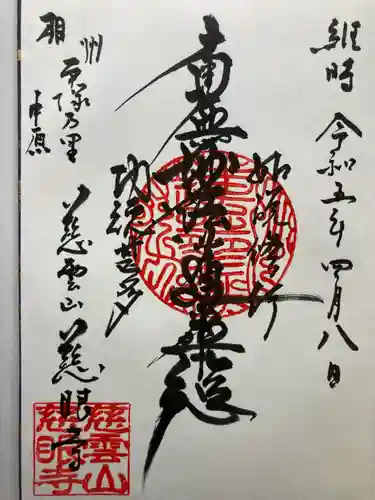 維時 令和五年 四月八日
如説修行
南無妙法蓮華経
功徳甚多
州
乃里
慈雲山 慈眼寺
慈雲山
慈眼寺